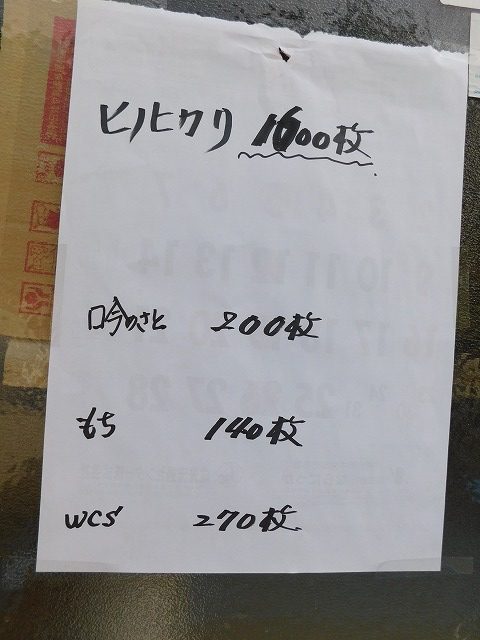 ヒノヒカリ 1600枚
吟のさと 200枚
もち 140枚
WCS 270枚